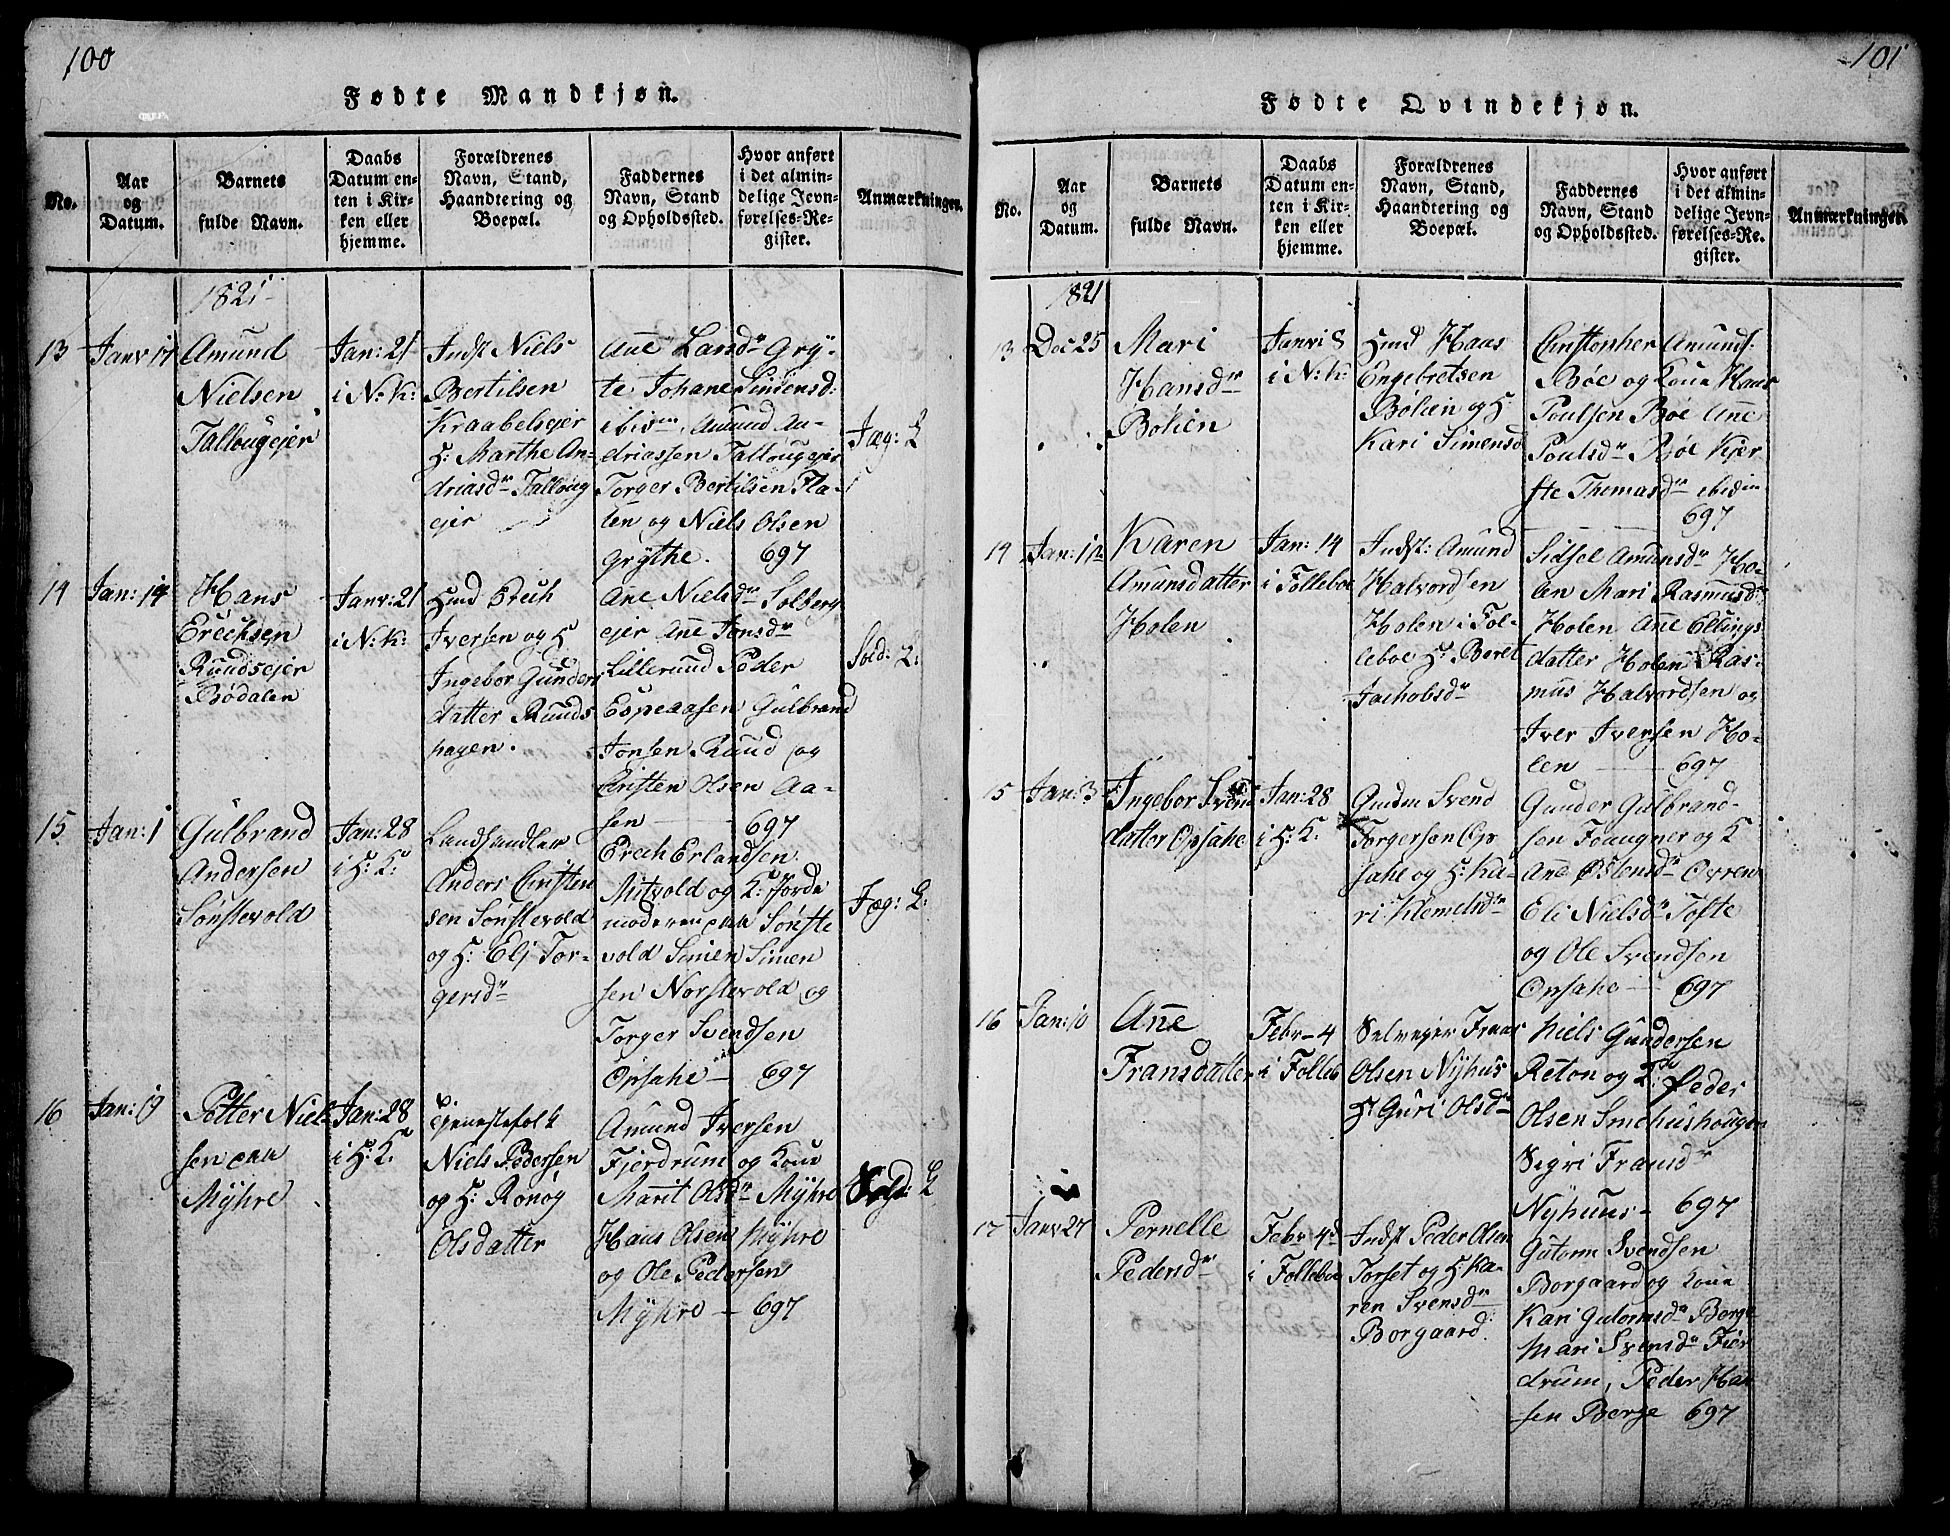 100
Fødte Mandkjøn.
No.
Aar
og
Datum.
Barnets
fulde Navn.
Daabs
Datum en-
ten i Kir-
ken eller
hjemme.
Forældrenes
Navn, Stand,
Haandtering og
Boepæl.
Faddernes
Navn, Stand
og Opholdssted.
Hvor anført
i det almin-
delige Jevn-
førelses-Re-
gister.
Anmærkningen.
1821
13
Janv 17
Amund
Nielsen
Tallougejer
Jan: 21
i N: K:
Indst Niels
Bertilsen
Kraabelsejer
H: Marthe An-
driasdr Talloug
ejer
Ane Larsdr Gry-
te Johane Simensd:
ibid, Amund An-
driassen Tallougejer
Torger Bertilsen Fla-
ten og Niels Olsen
Grÿthe. 697
Jæg: L
14
Jan: 14
Hans
Erichsen
Ruudsejer
Bødalen
Janv: 21
i N: K:
Hmd Erich
Iversen og H
Ingebor Gunders
datter Ruuds
hagen.
Ane Nielsdr Solberg
ejer Ane Jonsdr
Lillerund Peder
Espensen Gulbrand
Jonsen Ruud og
Cristen Olsen Aa-
sen 697
Sold: L:
15
Jan: 1
Gulbrand
Andersen
Sønstevold
Jan: 28
i H: K:
Landhandler
Anders Christen
sen Sønstevold
og H: Eli Tor-
gersdr
Erich Erlandsen
Mitvold og K: Jorde
moderen Sønste
vold Simen Simen
sen Norstevold og
Torger Svendsen
Opsahe 697
Jæg: L:
16
Jan: 19
Petter Niel
sen
Mÿhre
Jan: 28
i H: K.
Tjenestefolk
Niels Pedersen
og H: Rønog
Olsdatter
Amund Iversen
Fjerdrum og Kone
Marit Olsdr Mÿhre
Hans Olsen Mÿhre
og Ole Pedersen
Mÿhre 697
Sold: L
101
Fødte Qvindekjøn.
No.
Aar
og
Datum.
Barnets
fulde Navn.
Daabs
Datum en-
ten i Kir-
ken eller
hjemme.
Forældrenes
Navn, Stand,
Haandtering og
Boepæl.
Faddernes
Navn, Stand
og Opholdssted.
Hvor anført
i det almin-
delige Jevn-
førelses-Re-
gister.
Anmærkninger.
1821
13
Dec 25
Mari
Hansdr
Bøhen
Janvi 8
i N: K:
Hmd Haas
Engebretsen
Bølien og H:
Kari Simensd
Christopher Amunds:
Bøe og Kone Hans
Poulsen Bøe Ane
Poulsdr Bøe Kjer
ste Thomasdr ibidm
697
14
Jan: 12
Karen
Amunsdatter
Holen
Jan: 14
i Folleboe
Indst: Amund
Halvordsen
Holen i Fol-
leboe H: Beret
Jachobsdr
Sidsel Amunsdr Ho-
len Mari Rasmusd
Holen Ane Ellings
datter Holen Ras-
mus Halvordsen og
Iver Iversen Ho-
len 697
15
Jan: 3
Ingebor Svens
datter Opsahe
Jan: 28
i H: K.
Gmdm Svend
Torgersen Op
sahe og H: Ka-
ri Klemetsdr
Gunder Gulbrand-
sen Foaugner og K
Ane Østensdr Ovren
Eli Nielsdr Tofte
og Ole Svendsen
Opsahe 697
16
Jan: 10
Ane
Fransdatter
Febr 4
i Folleb
Selvejer Frans
Olsen Nÿhus
H: Guri Olsdr
Niels Gundersen
Reton og K: Peder
Olsen Smehushougen
Sigri Fransdr
Nÿhuus 697
17
Janv 27
Pernelle
Pedersdr
Febr 4d
i Folleboe
Indst Peder Olsen
Torset og H Ka-
ren Svensdr
Borgaard.
Gutorm Svendsen
Borgaard og Kone
Kari Gutormsdr Borge
Mari Svensdr Fier
drum, Peder Han
sen Berge 697